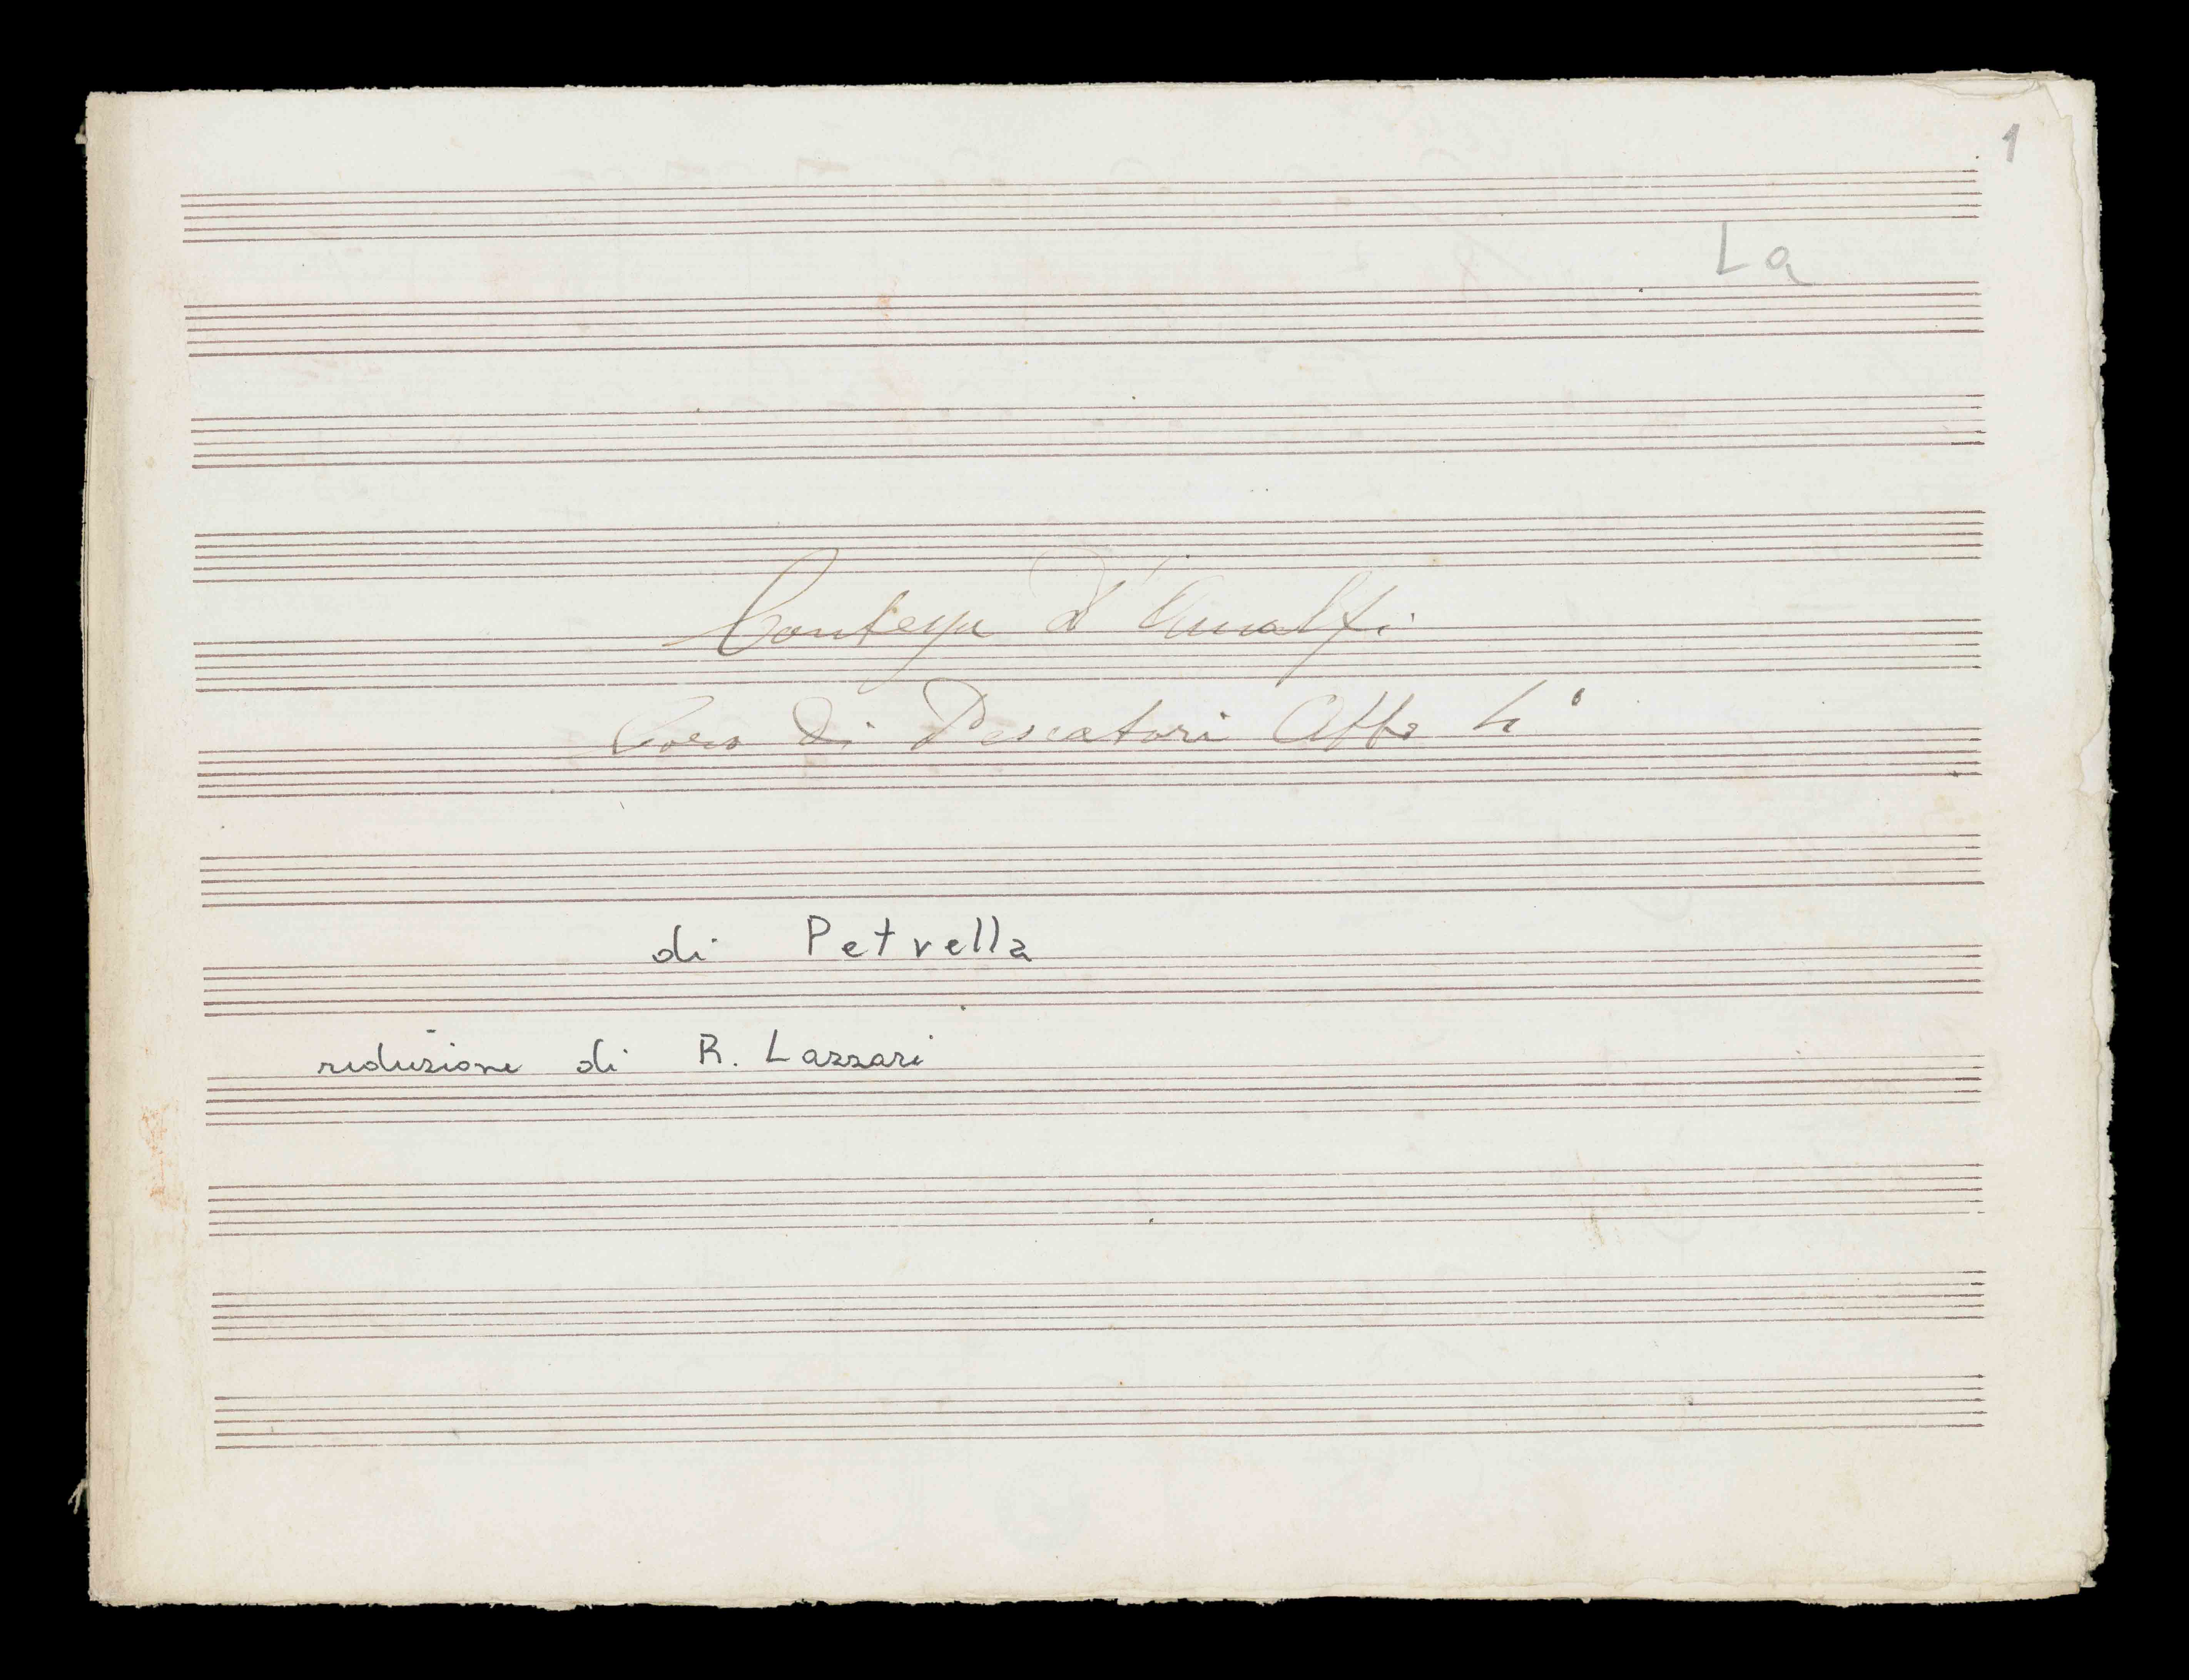 1
La
Contessa d'Amalfi
Coro di Pescatori Atto 4°
di Petrella
riduzione di R. Lazzari